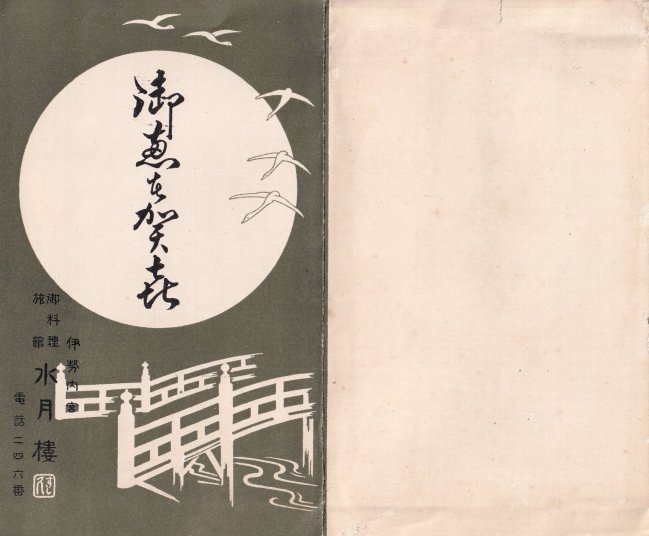 御恵者賀喜
伊勢内宮
御料理
旅館
水月樓
電話二四六番